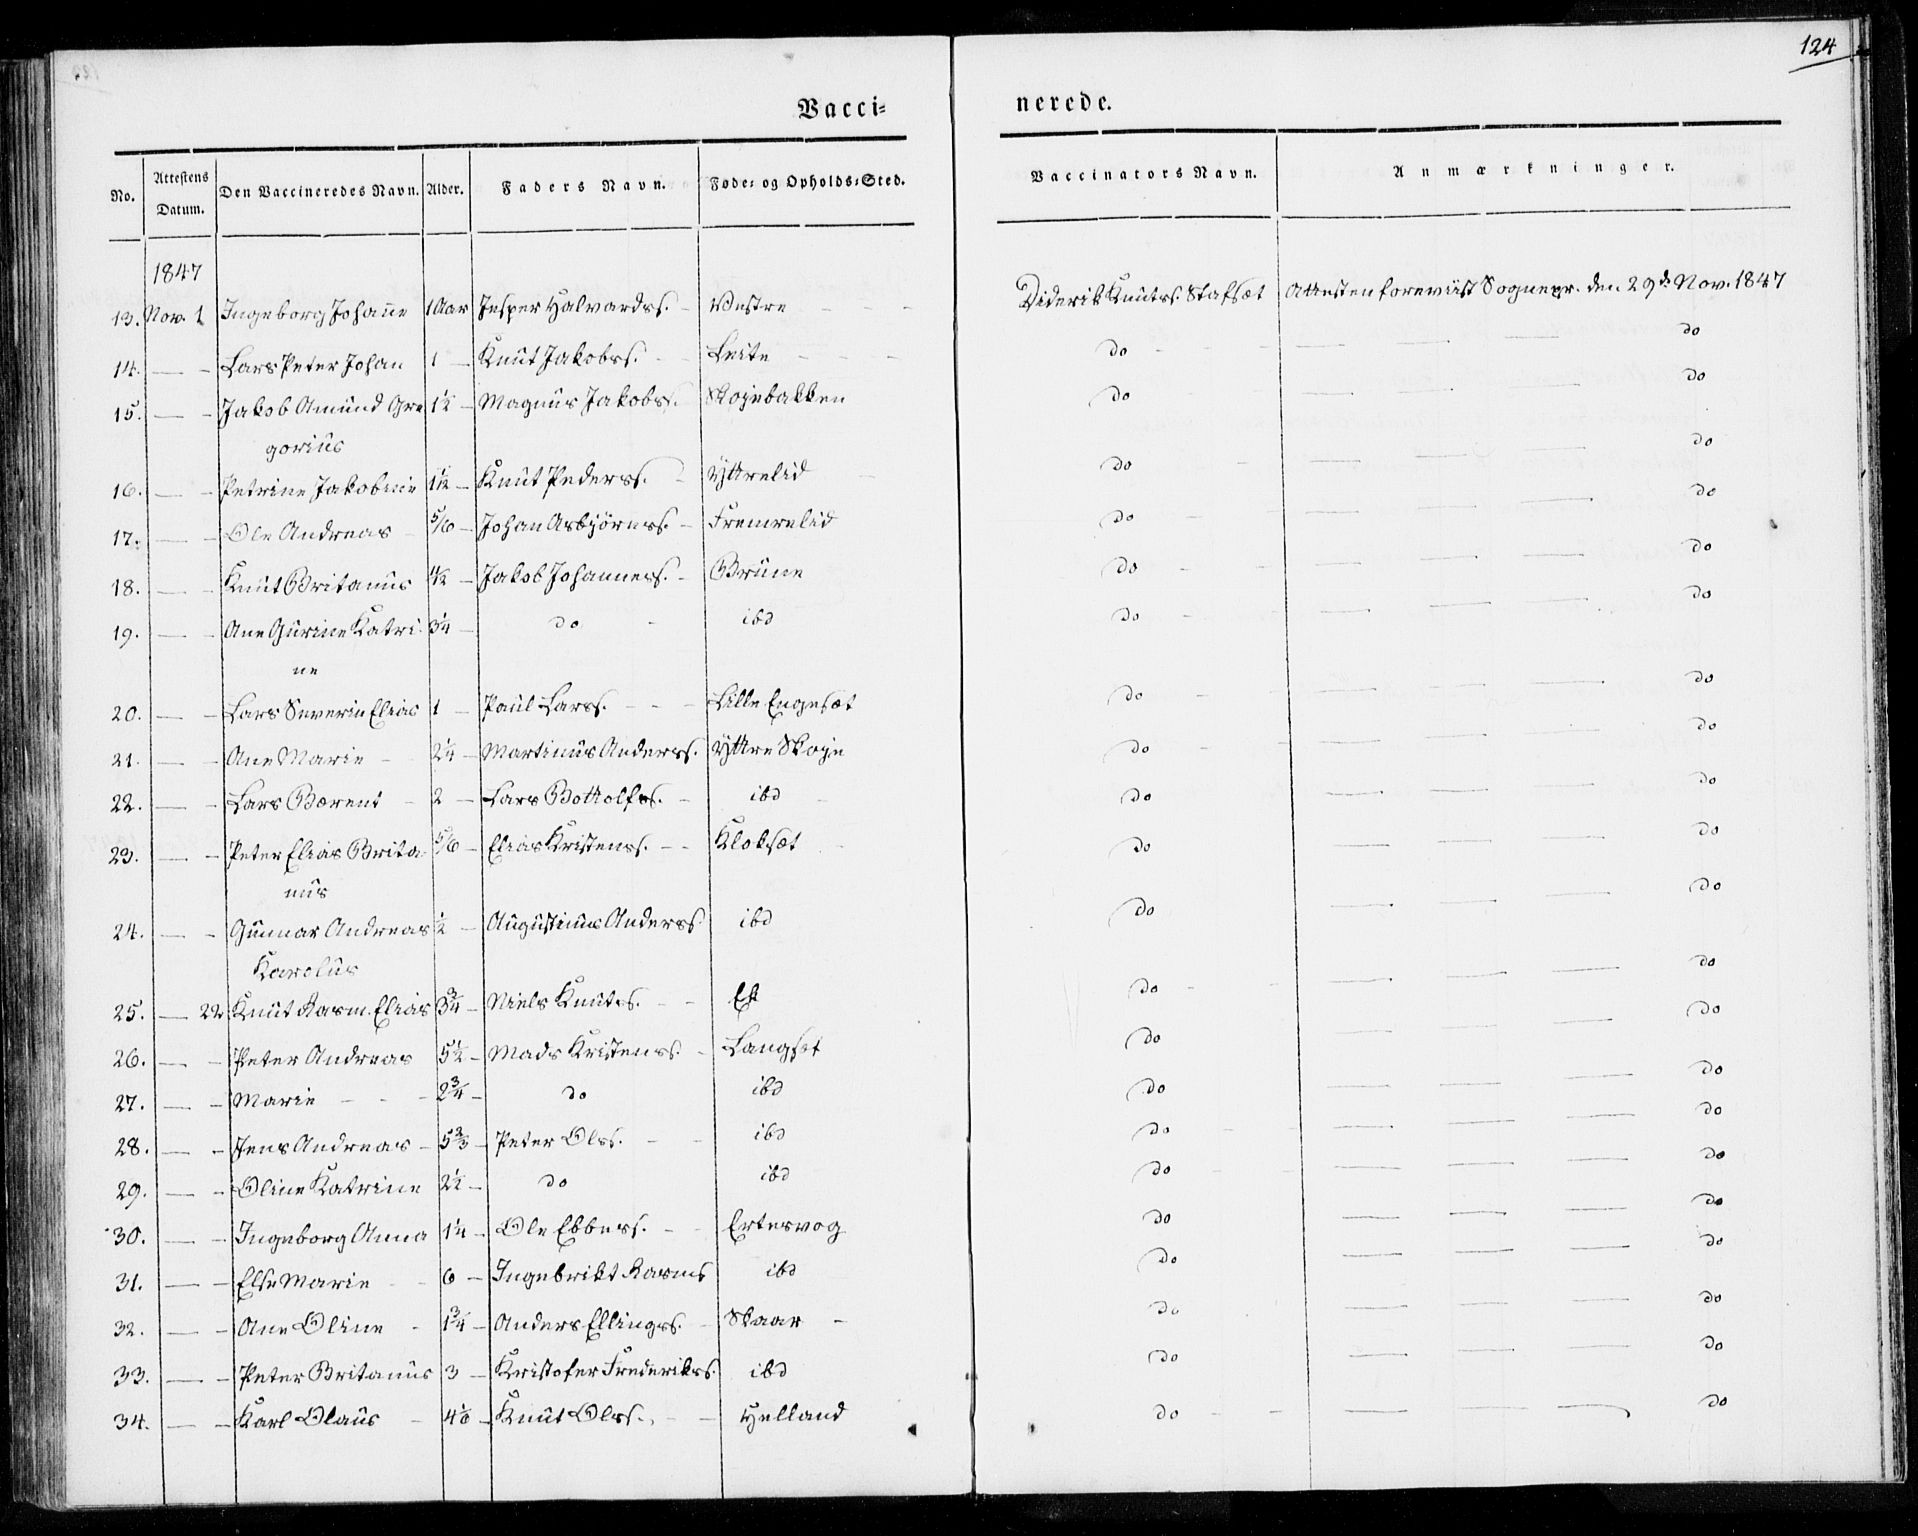 124
Vacci= nerede.
No. Attestens Datum. Den Vaccineredes Navn. Alder. Faders Navn. Føde= og Opholds=Sted. Vaccinators Navn. Anmærkninger.
1847
13. Nov. 1 Ingeborg Johanne 1 Aar Jesper Halvards. - Vestre - - Diderik Knuts. Stafsæt Attesten foreviist Sognepr. den 29d. Nov. 1847
14. — - Lars Peter Johan 1 — Knut Jakobs. - Leite - - - do - - — — — do
15. — - Jakob Amund Gre 1½ — Magnus Jakobs. Skojebakken do - — — — do
gorius
16. — - Petrine Jakobine 1½ — Knut Peders. - Yttrelid do - — — — do
17. — - Ole Andreas - 5/6 — Johan Asbjørns. - Fremrelid do - — — — do
18. — - Knut Britanus — Jakob Johannes. - Brune do - — — — do
19. — - Ane Gurine Katri- 3¼ — do - ibd do - — — — do
ne
20. — - Lars Severin Elias 1 — Paul Lars. - - - Lille Engesæt do - — — — do
21. — - Ane Marie - 2¼ — Martinus Anders. Yttre Skoje do - — — — do
22. — - Lars Bærent - 2 — Lars Bottolfs. - ibd do — — — do
23. — - Peter Elias Brita- 5/6 — Elias Kristens. - - Kloksæt do — — — do
nus
24. — - Gunnar Andreas ½ — Augustinus Anders. ibd do — — — do
Karolus
25. — 22 Knut Rasm. Elias 3¾ — Niels Knuts. - - Ek do - — — — do
26. — - Peter Andreas 5½ — Mads Kristens. - Langset do — — — do
27. — - Marie - - - 2¾ — do ibd do — — — do
28. — - Jens Andreas - 5⅔ — Peter Ols. - - ibd do - — — — do
29. — - Oline Katrine 2½ — do ibd do - - — — — do
30. — - Ingeborg Anna 1¼ — Ole Ebbes. - - Ertesvog do — — — do
31. — - Else Marie - 6 — Ingebrikt Rasms ibd do — — — do
32. — - Ane Oline - 1¾ — Anders Ellings. - Skaar - do — — — do
33. — - Peter Britanus 3 — Kristofer Frederiks. ibd do — — — do
34. — - Karl Olaus - — Knut Ols. - - Helland do - - — — — do